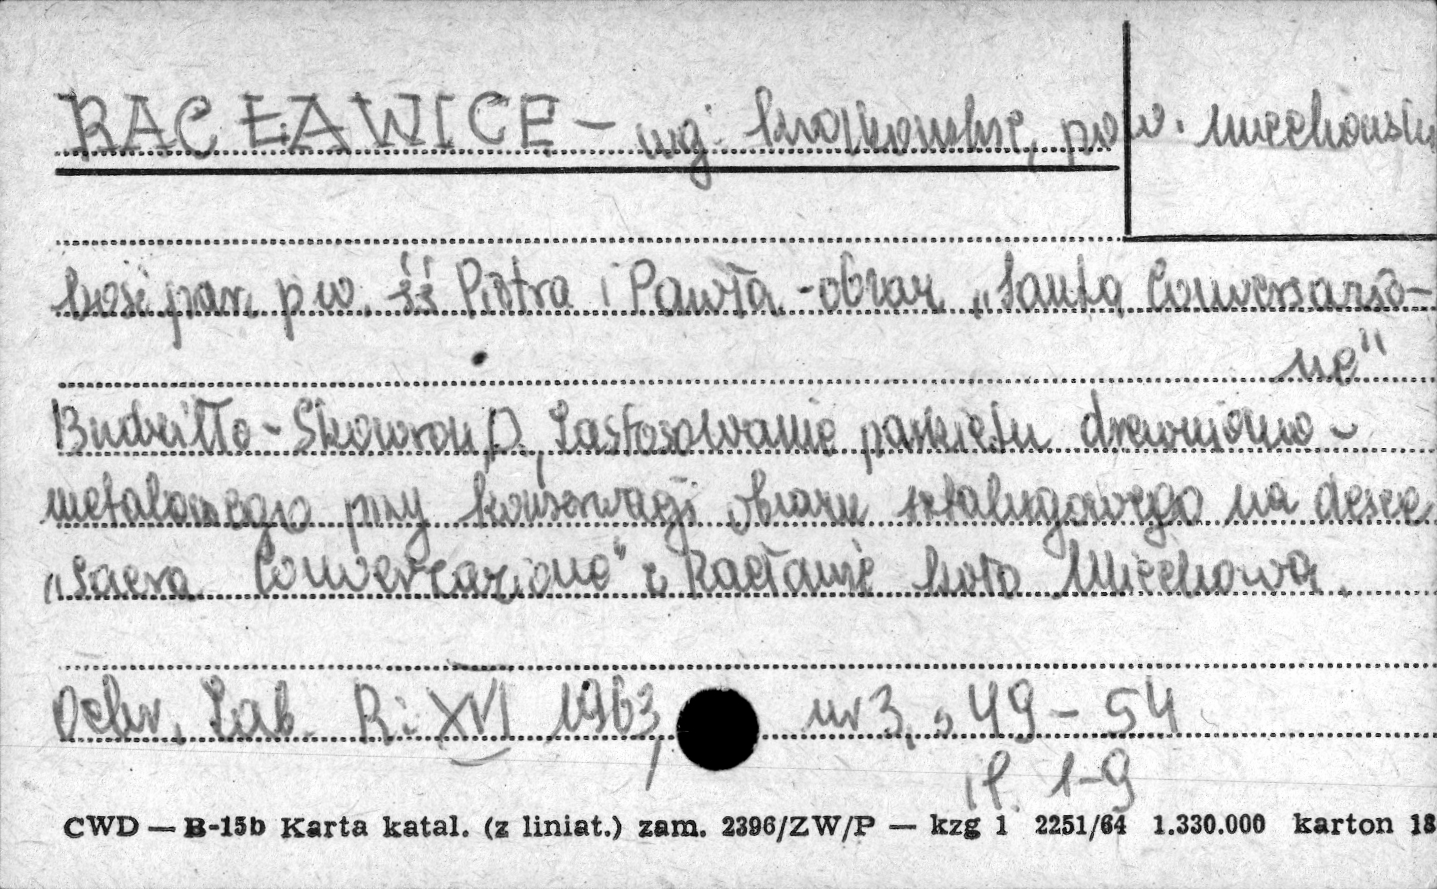 RACŁAWICE - woj. krakowskie, pow. miechowski
kość. par. p.w. śś Piotra i Pawła - obraz „Santa Conversazio-
ne"
Budziłło-Skowron D., Zastosowanie parkietu drewniano-
metalowego przy konserwacji obrazu sztalugowego na desce
„Sacra Conversazione" z Racławic koło Miechowa.
Ochr. Zab. R: XVI 1963, nr 3, s 49-54
il. 1-9
CWD — B-15b Karta katal. (z liniat.) zam. 2396/ZW/P — kzg 1 2251/64 1.330.000 karton 18